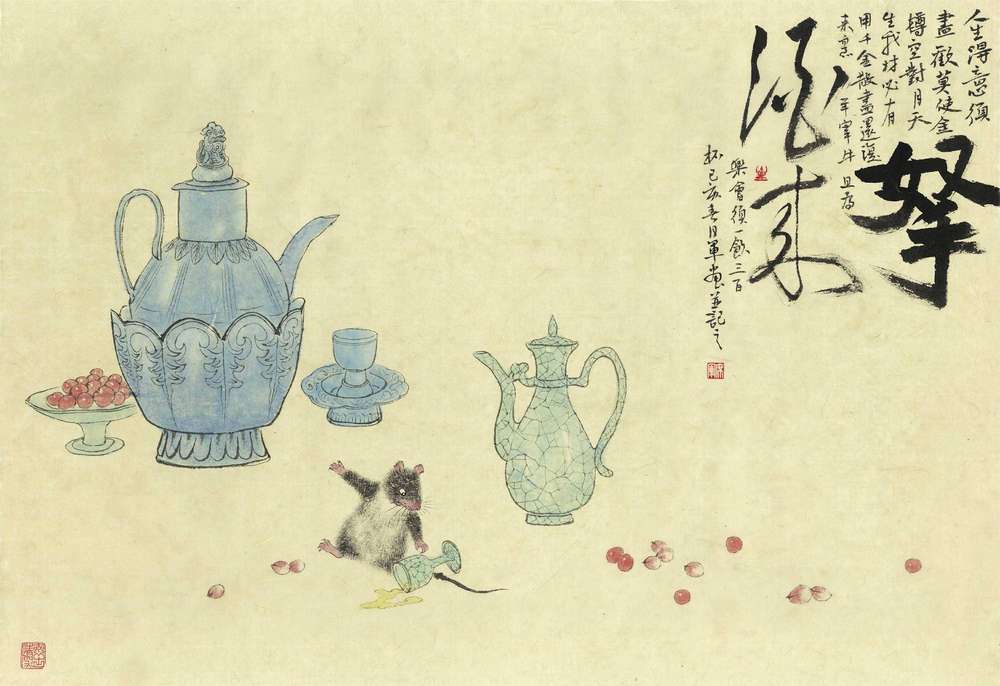 拏
酒来
人生得意須
盡歡莫使金
樽空對月天
生我材必有
用千金散盡還復
来烹羊宰牛且為
樂會須一飲三百
杯己亥春日軍畫並記之